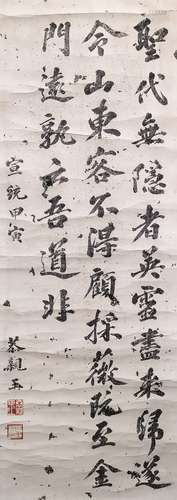 聖代無隱者英靈盡來歸遂
令山東客不得顧採薇既至金
門遠孰云吾道非
宣統甲寅
恭親王